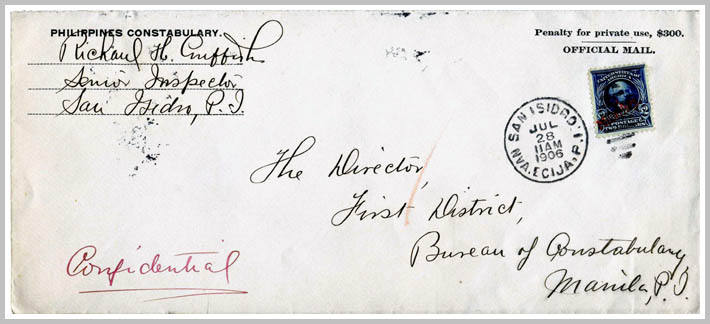 PHILIPPINES CONSTABULARY.
Richard H. Griffith
Senior Inspector
San Isidro, P.I.
Penalty for private use, $300.
OFFICIAL MAIL.
UNITED STATES OF AMERICA
POSTAGE
TWO DOLLARS
SAN ISIDRO,
JUL
28
11AM
1906
NVA. ECIJA, P.I.
The Director,
First District,
Bureau of Constabulary
Manila, P.I.
Confidential